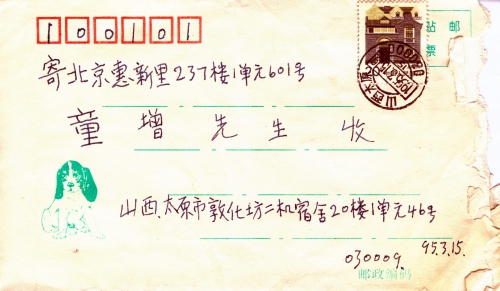 100101
贴邮
票
寄北京惠新里237楼1单元601号
童增先生 收
山西.太原市敦化坊二机宿舍20楼1单元46号
030009.
95.3.15.
邮政编码